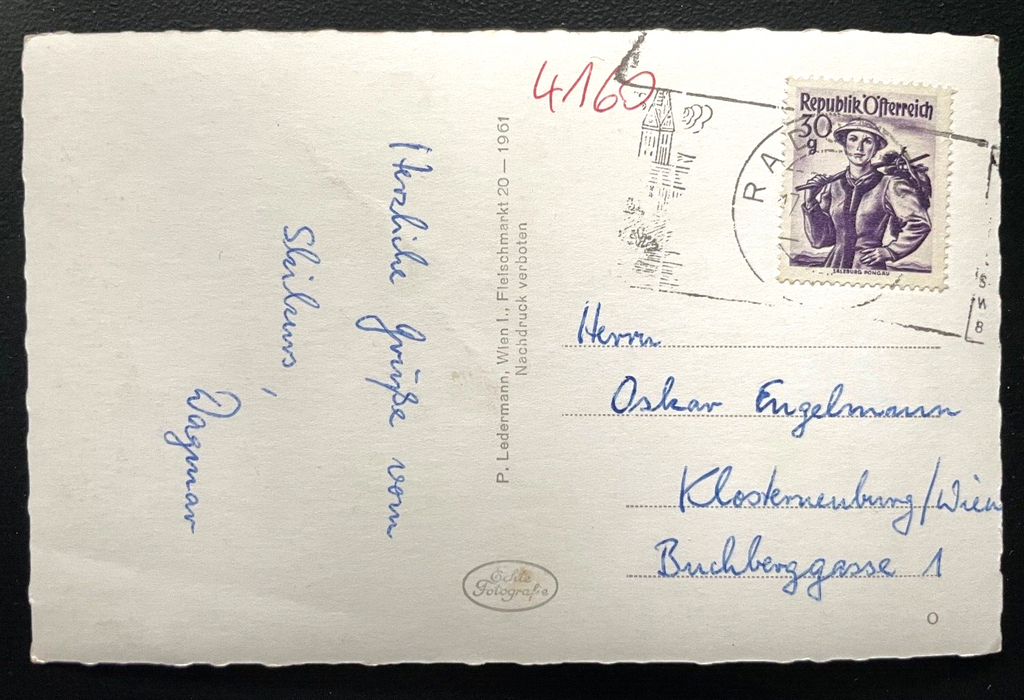 4160
Republik Österreich
30
g
SALZBURG PONGAU
RAD
17
Herzliche Grüße vom
Skikurs,
Dagmar
P. Ledermann, Wien I., Fleischmarkt 20 — 1961
Nachdruck verboten
Echte
Fotografie
Herrn
Oskar Engelmann
Klosterneuburg/Wien
Buchberggasse 1
O